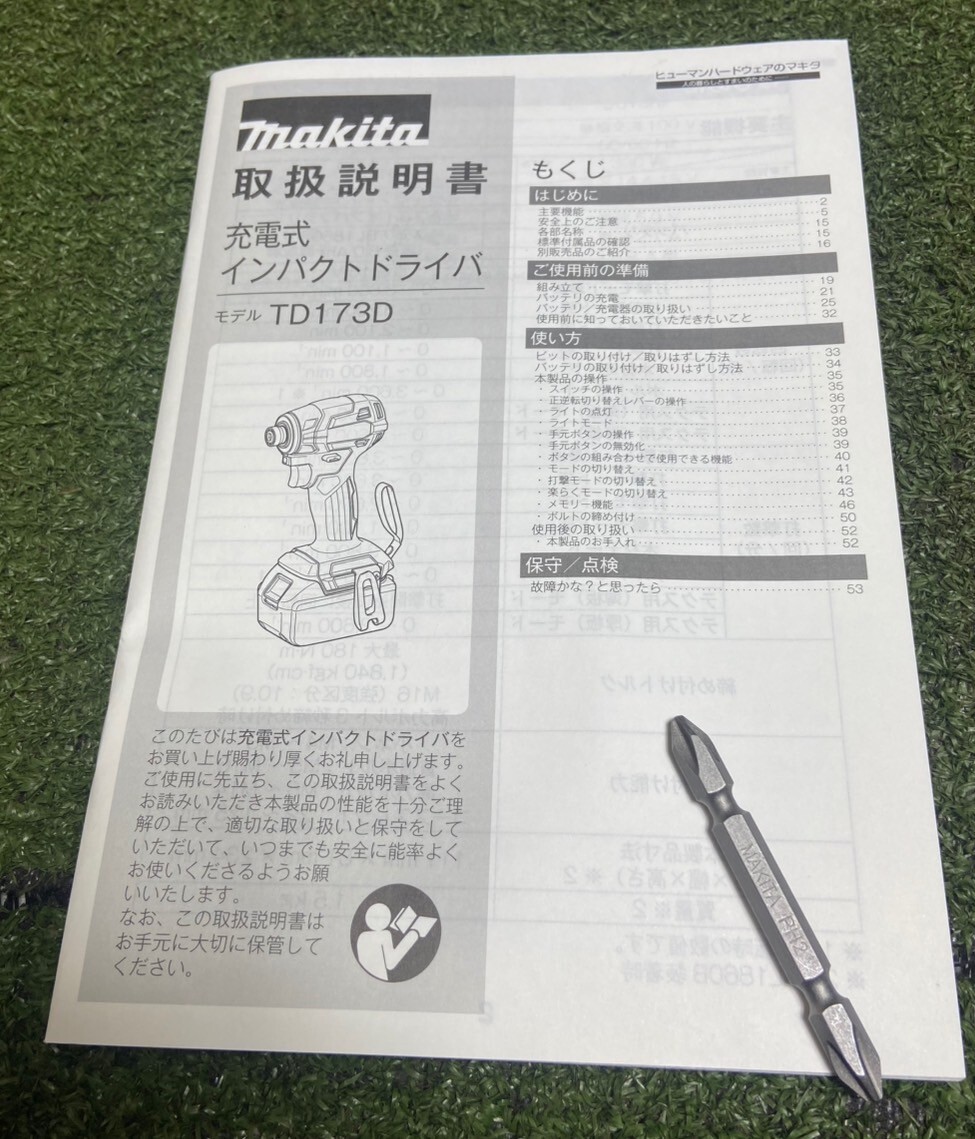 makita
取扱説明書
充電式
インパクトドライバ
モデル TD173D
このたびは充電式インパクトドライバを
お買い上げ賜わり厚くお礼申し上げます。
ご使用に先立ち、この取扱説明書をよく
お読みいただき本製品の性能を十分ご理
解の上で、適切な取り扱いと保守をして
いただいて、いつまでも安全に能率よく
お使いくださるようお願
いいたします。
なお、この取扱説明書は
お手元に大切に保管して
ください。
ヒューマンハードウェアのマキタ
人の暮らしとすまいのために
もくじ
はじめに
主要機能 2
安全上のご注意 5
各部名称 15
標準付属品の確認 15
別販売品のご紹介 16
ご使用前の準備
組み立て 19
バッテリの充電 21
バッテリ／充電器の取り扱い 25
使用前に知っておいていただきたいこと 32
使い方
ビットの取り付け／取りはずし方法 33
バッテリの取り付け／取りはずし方法 34
本製品の操作 35
・スイッチの操作 35
・正逆転切り替えレバーの操作 36
・ライトの点灯 37
・ライトモード 38
・手元ボタンの操作 39
・手元ボタンの無効化 39
・ボタンの組み合わせで使用できる機能 40
・モードの切り替え 41
・打撃モードの切り替え 42
・楽らくモードの切り替え 43
・メモリー機能 46
・ボルトの締め付け 50
使用後の取り扱い 52
・本製品のお手入れ 52
保守／点検
故障かな？と思ったら 53
MAKITA PH2